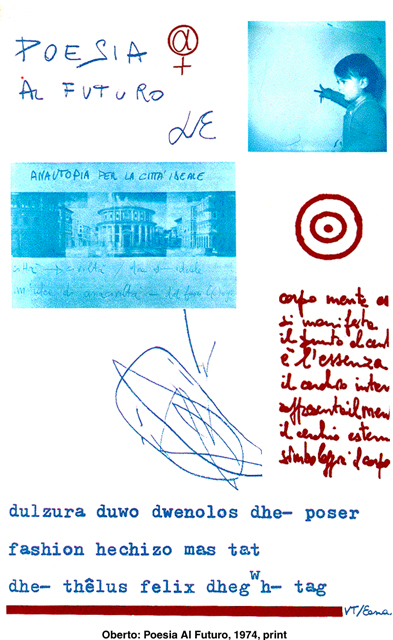 POESIA
AL FUTURO
ANAUTOPIA PER LA CITTA' IDEALE
corpo mente
si manifesta
il punto al cent
è l'essenza
il cerchio inter
rappresenta il men
il cerchio estern
simboleggia il corpo
dulzura duwo dwenolos dhe- poser
fashion hechizo mas tat
dhe- thêlus felix dhegʷh- tag
Oberto: Poesia Al Futuro, 1974, print